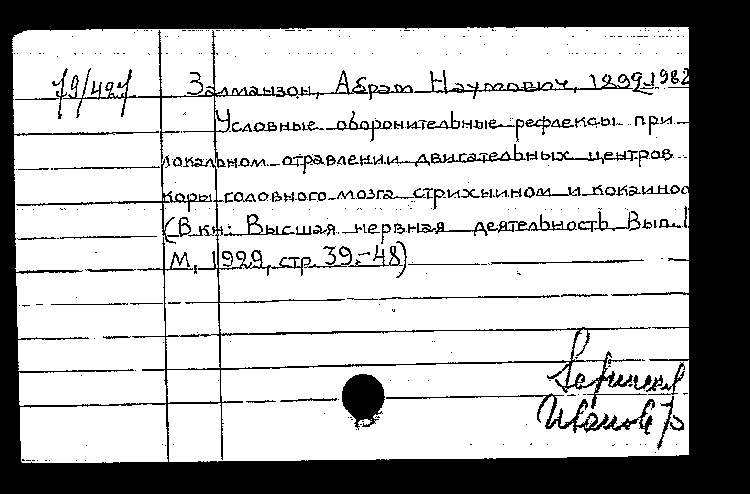 79/427
Залманзон, Абрам Наумович, 1899-1982
Условные оборонительные рефлексы при
локальном отравлении двигательных центров
коры головного мозга стрихнином и кокаином
(В кн: Высшая нервная деятельность. Вып. 1
М, 1929, стр. 39-48)